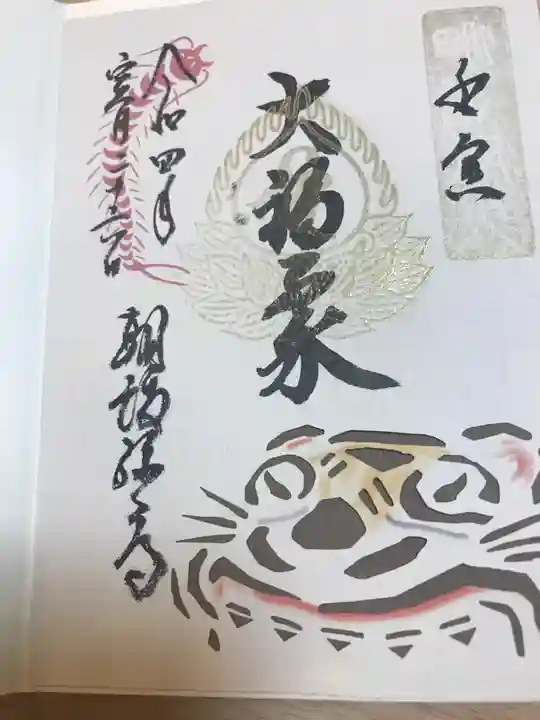 壬寅
大福聚
令和四年
月二十六日
朝護孫子寺